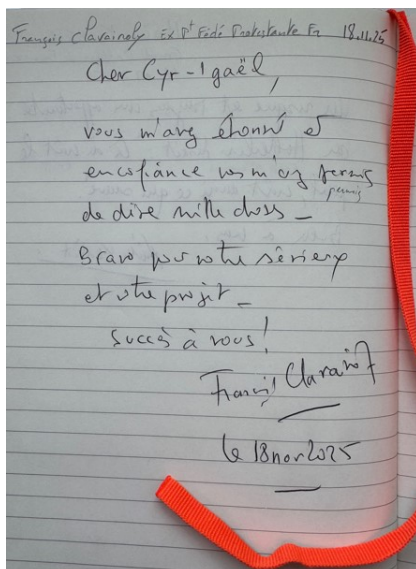 François Clavairoly Ex Pt Fédé Protestante Fr 18.11.25
Cher Cyr-Igaël,
vous m'avez étonné et
en confiance vous m'avez permis
permis
de dire mille choses –
Bravo pour votre sérieux
et votre projet –
Succès à vous !
François Clavairoly
le 18 nov 2025